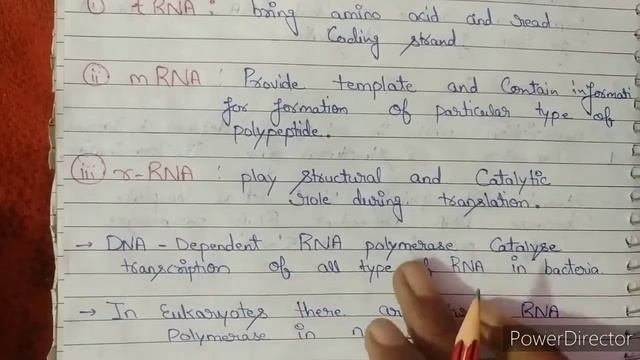 i) tRNA : bring amino acid and read
Coding strand
ii) mRNA : Provide template and Contain informati
for formation of particular type of
polypeptide.
iii) r-RNA : play structural and Catalytic
role during translation.
→ DNA - Dependent RNA polymerase Catalyse
transcription of all type RNA in bacteria
→ In Eukaryotes there RNA
Polymerase in
PowerDirector